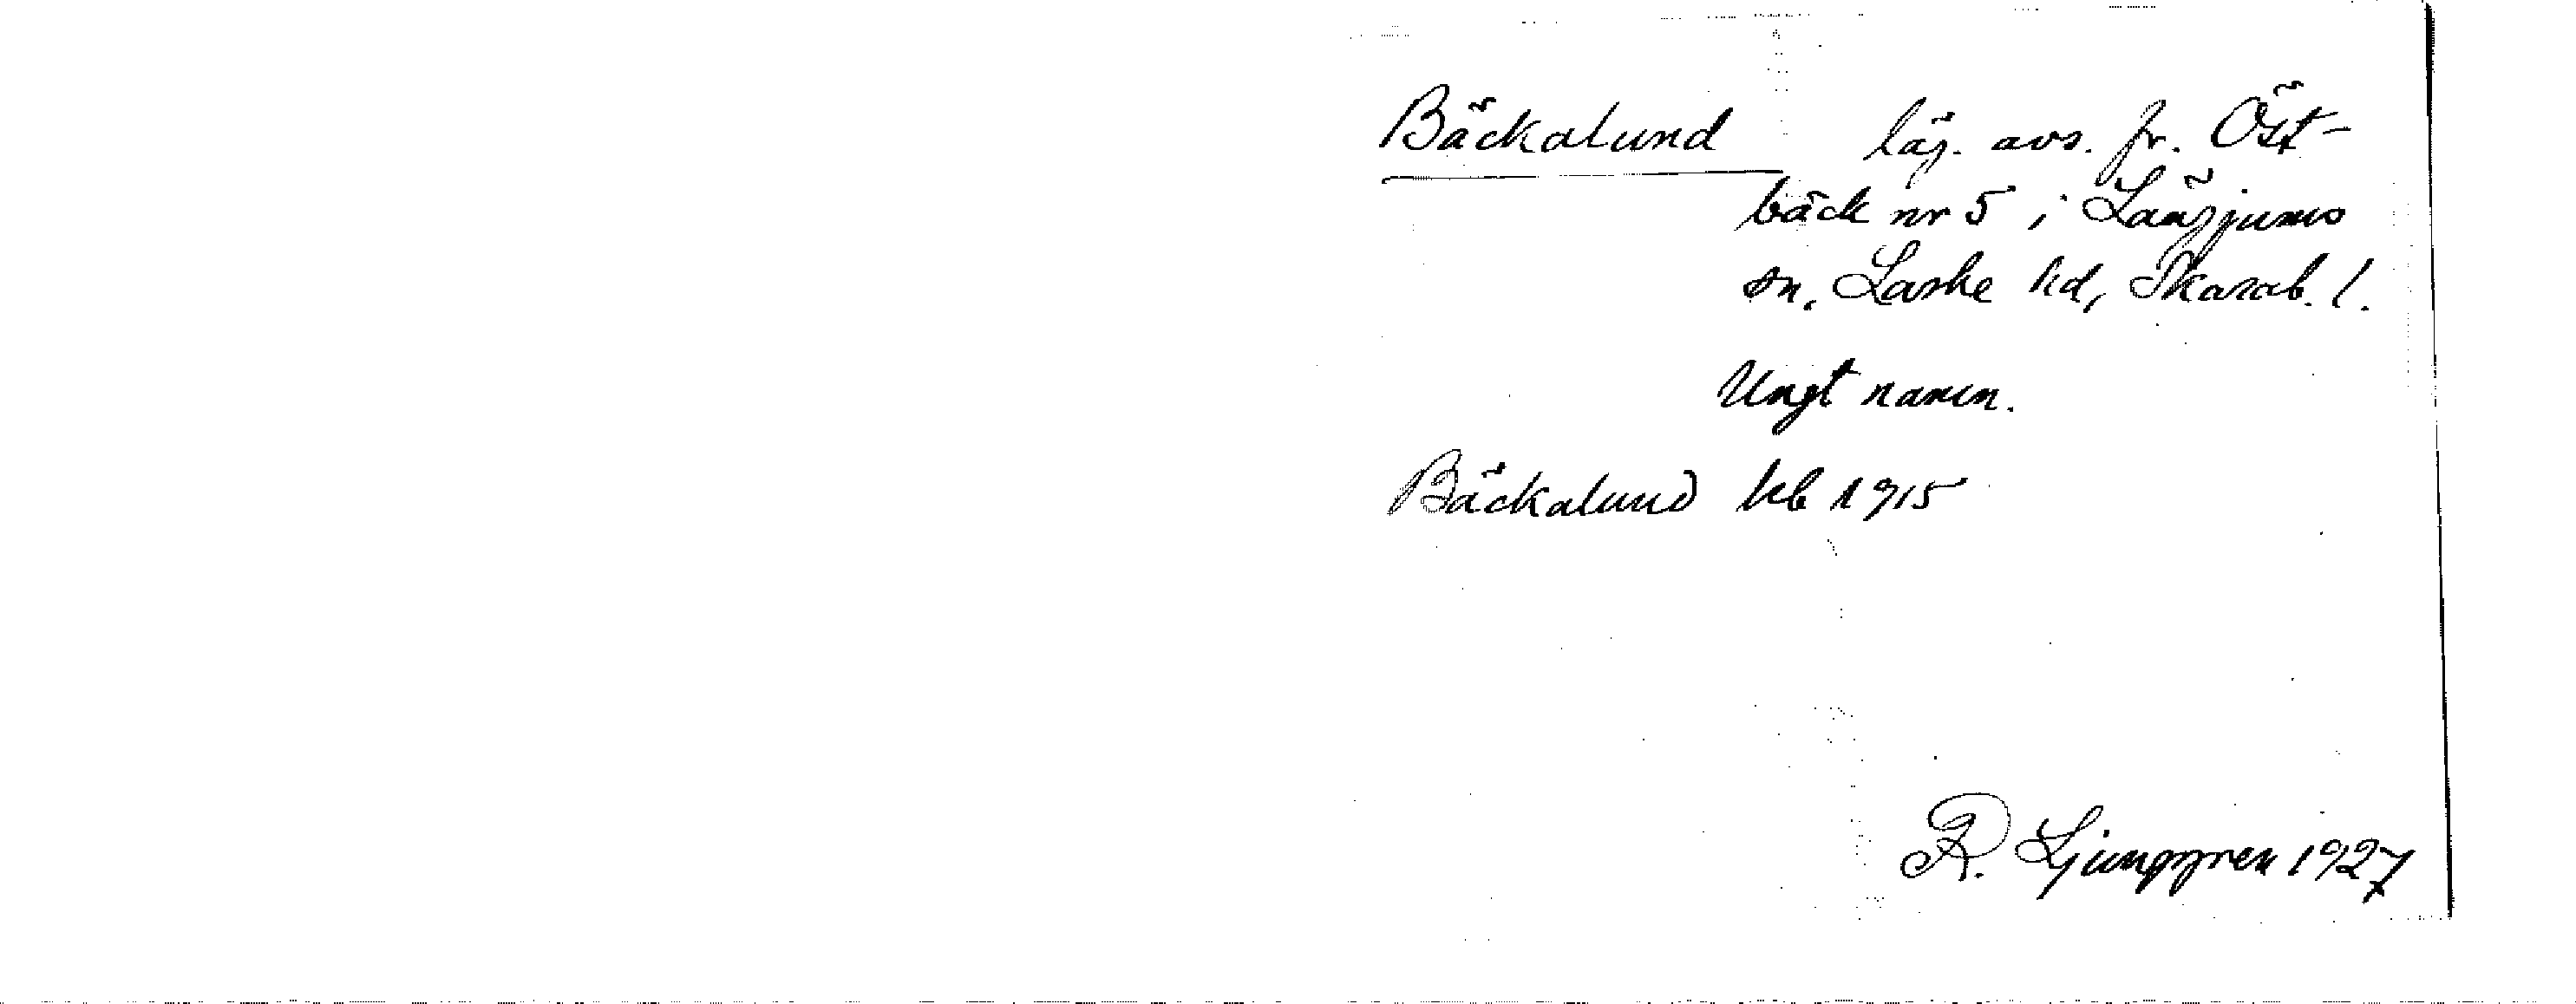 Bäckalund läg. avs. fr. Öst-
bäck nr 5 i Längjums
sn, Laske hd, Skarab. l.
Ungt namn.
Bäckalund kb 1915
R. Ljunggren 1927